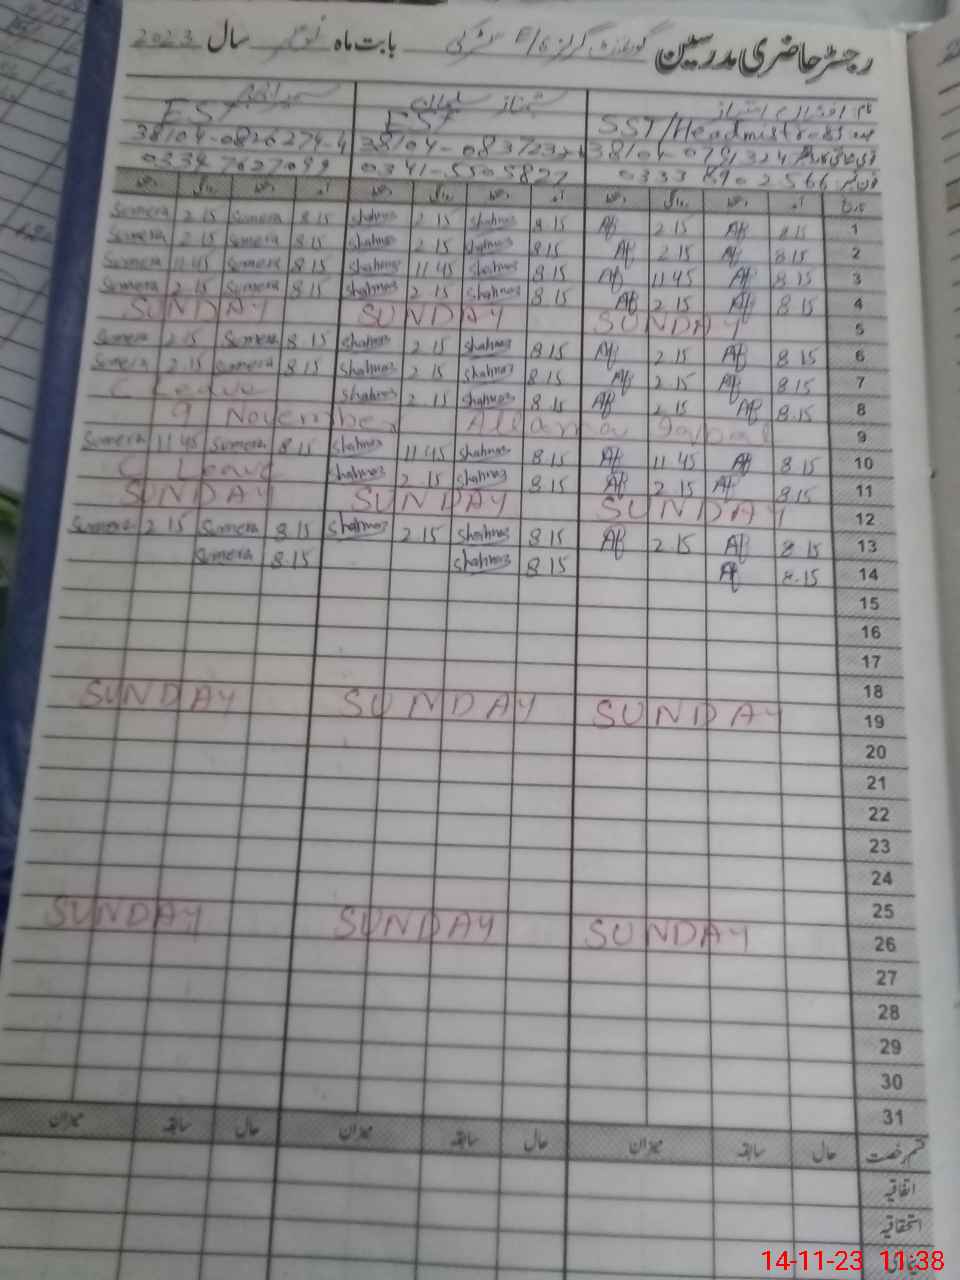 رجسٹر حاضری مدرسین گورنمنٹ گرلز E/S بابت ماہ نومبر سال 2023
نام
SST/Headmistress عہدہ EST EST
38104-0826274-4
0333 8902566 0341-5505827 0334 7627099
تاریخ آمد دستخط روانگی دستخط آمد دستخط روانگی دستخط آمد دستخط روانگی دستخط
Sumera 2 15 Sumera 8 15 Shahnaz 2 15 Shahnaz 8 15 Af 2 15 Af 8 15 1
Sumera 2 15 Sumera 8 15 Shahnaz 2 15 Shahnaz 8 15 Af 2 15 Af 8 15 2
Sumera 11 45 Sumera 8 15 Shahnaz 11 45 Shahnaz 8 15 Af 11 45 Af 8 15 3
Sumera 2 15 Sumera 8 15 Shahnaz 2 15 Shahnaz 8 15 Af 2 15 Af 8 15 4
SUNDAY SUNDAY SUNDAY 5
Sumera 2 15 Sumera 8 15 Shahnaz 2 15 Shahnaz 8 15 Af 2 15 Af 8 15 6
Sumera 2 15 Sumera 8 15 Shahnaz 2 15 Shahnaz 8 15 Af 2 15 Af 8 15 7
C Leave Shahnaz 2 15 Shahnaz 8 15 Af 2 15 Af 8.15 8
9 November Allama Iqbal 9
Sumera 11 45 Sumera 8 15 Shahnaz 11 45 Shahnaz 8.15 Af 11 45 Af 8 15 10
C Leave Shahnaz 2 15 Shahnaz 8.15 Af 2 15 Af 8 15 11
SUNDAY SUNDAY SUNDAY 12
Sumera 2 15 Sumera 8 15 Shahnaz 2 15 Shahnaz 8 15 Af 2 15 Af 8 15 13
Sumera 8.15 Shahnaz 8 15 Af 8.15 14
15
16
17
18
SUNDAY SUNDAY SUNDAY 19
20
21
22
23
24
25
SUNDAY SUNDAY SUNDAY 26
27
28
29
30
31
قسم رخصت حال سابقہ میزان حال سابقہ میزان حال سابقہ میزان
اتفاقیہ
استحقاقیہ
14-11-23 11:38